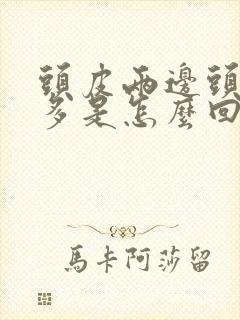 頭皮兩邊頭
多是怎麼回
馬卡阿莎留